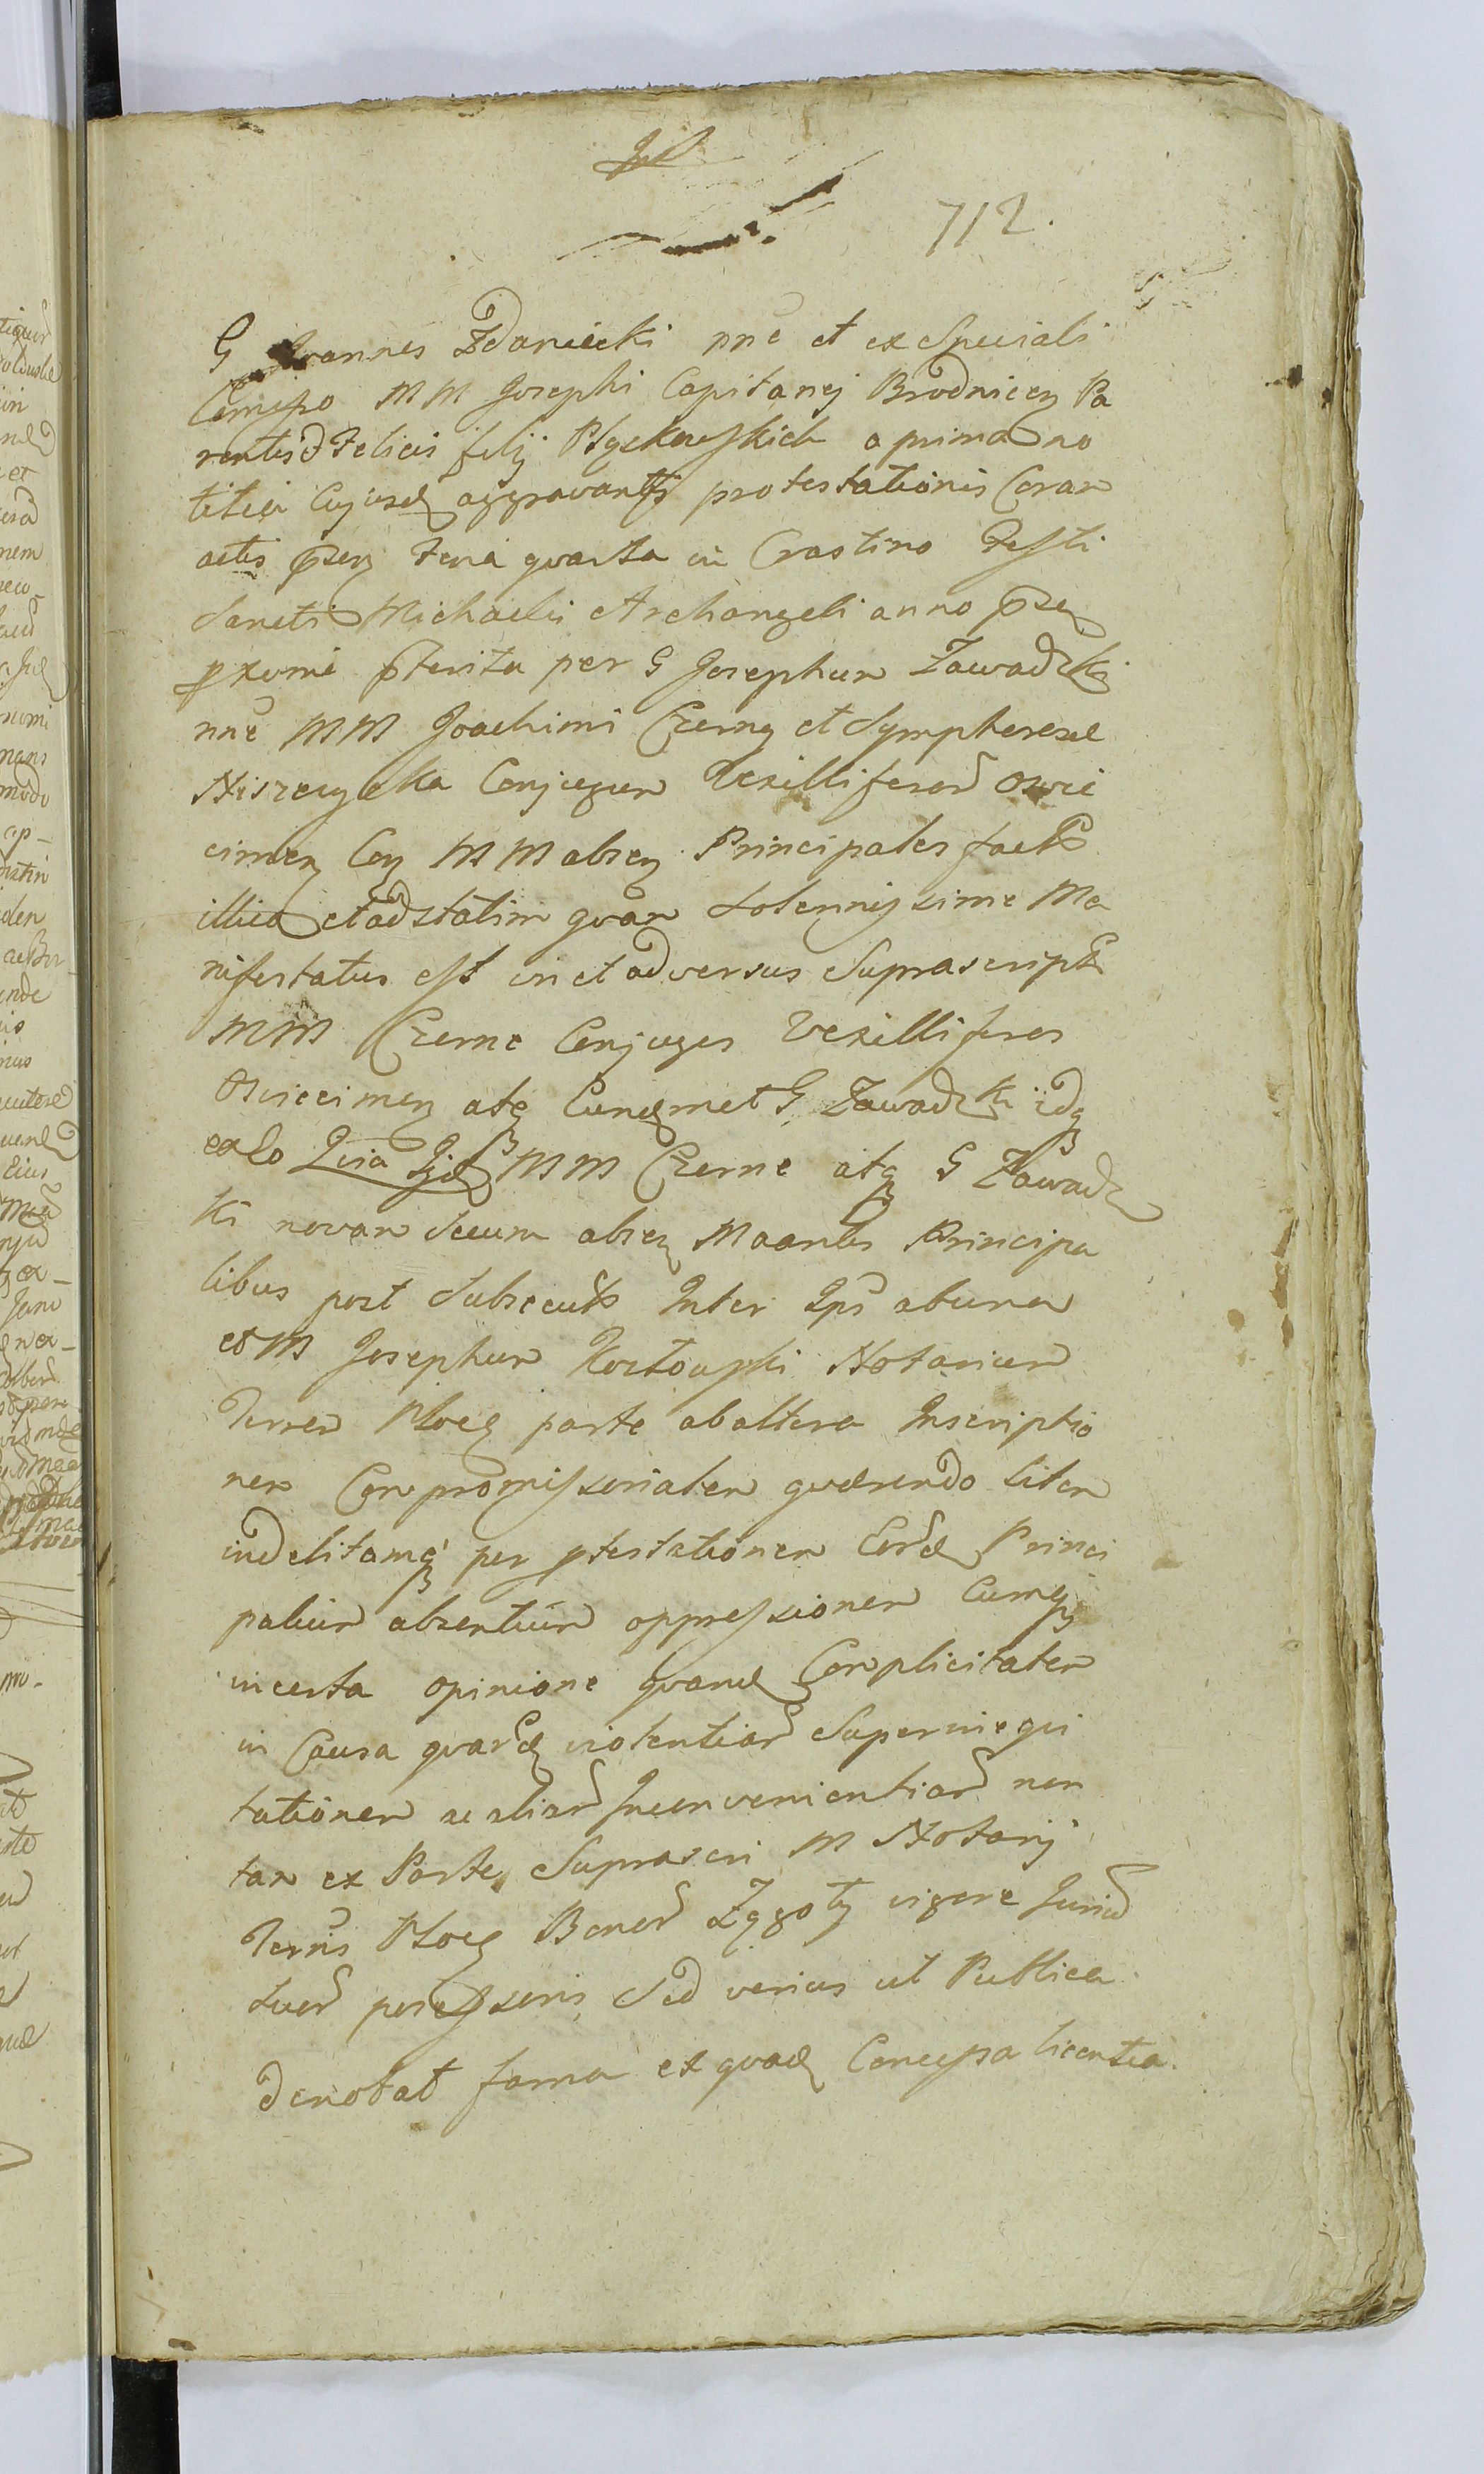 712.
G Joannes Zdaniecki nne et ex Speciali
Comisso MM Josephi Capitanej Brodnicen Pa
rentis Felicis filij Plyckowskich a prima no
titia Cujusd aggravantis protestationis Coram
actis pren Feria quarta in Crastino Festi
Sancti Michaelis Archangeli anno pren
proxime pterita per G Josephum Zawadzki
nne MM Joachimi Czerny et Sympherose
Niszczycka Conjugum Vexilliferor Oswie
cimen Con MM absen Principales fact
illico et adstatim quam Solennissime Ma
nifestatus est in et adversus Suprascript
MM Czerne Conjuges Vexilliferos
Oswiecimen atq Eundmet G Zawadzki idq
ex eo Quia Ijd MM Czerne atq G Zawadz
ki novam Secum absen Maantis Principa
libus post Subsecut Inter Ips ab una
et M Josephum Kostowski Notarium
Terren Plocen parte ab altera Inscriptio
nem Compromissorialem quærendo litem
indebitamq per ptestationem Eord Princi
palium absentium oppressionem Cumq
incerta opinione quand Complicitatem
in Causa quard violentiar Supernequi
tationem ac aliar Inconvenientiar non
tam ex Parte Suprascri M Notarij
Terris Plocen Bonor Zągoty vigore Jurium
suor possessoris Sed verius ut Publica
denotat fama ex quad Concepta licentia.